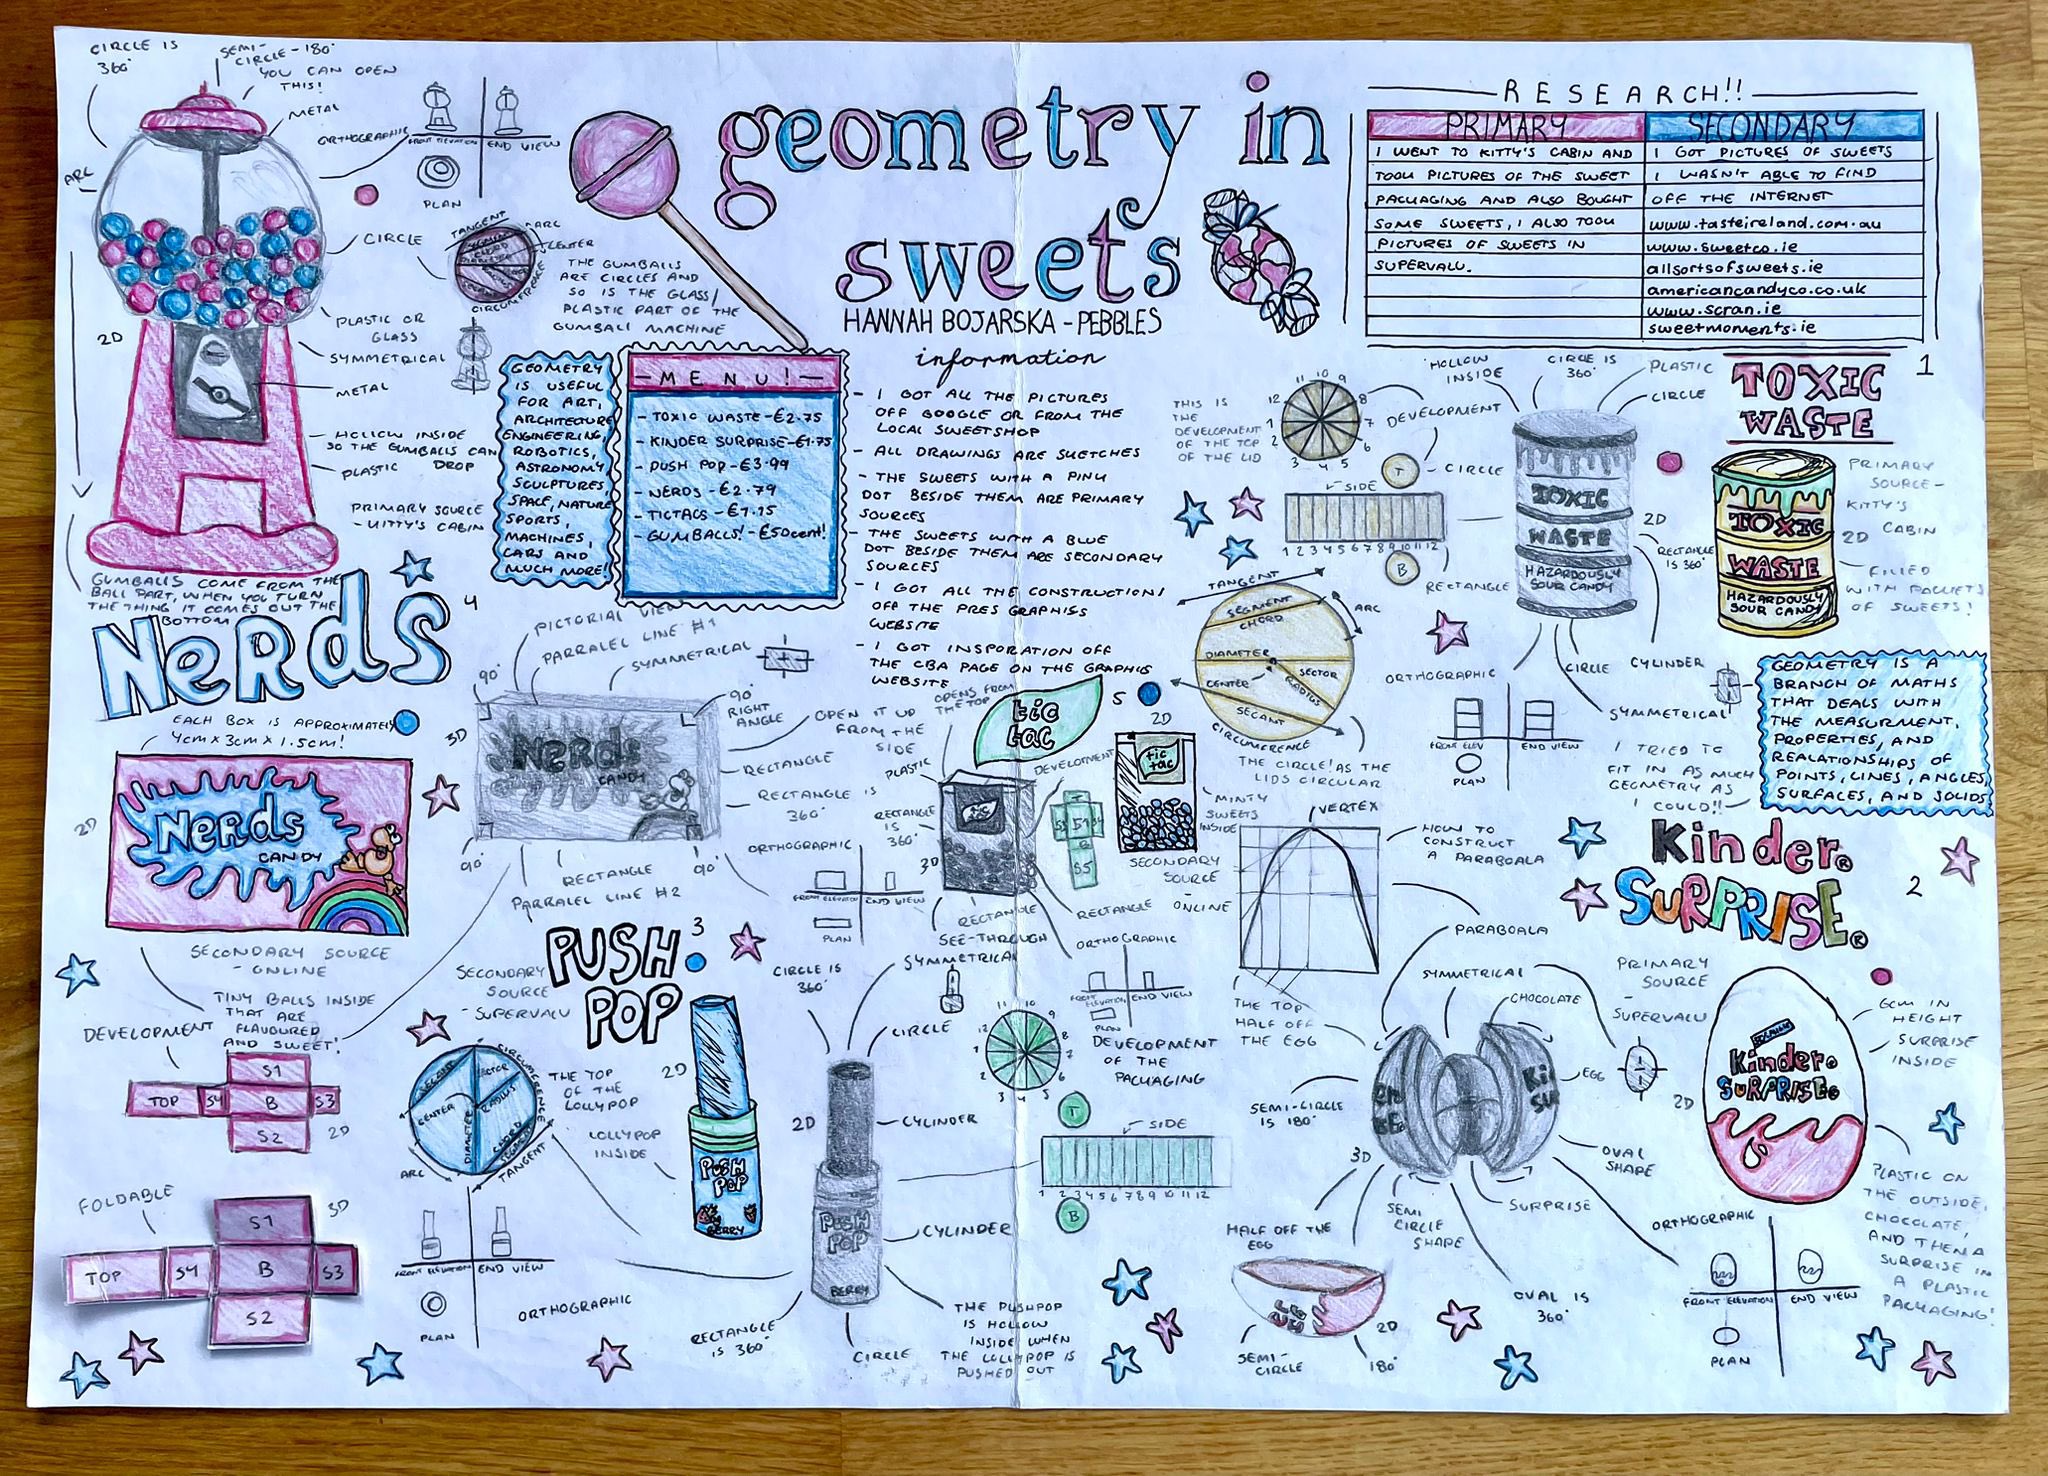 geometry in
sweets
HANNAH BOJARSKA - PEBBLES
RESEARCH!!
PRIMARY
I WENT TO KITTY'S CABIN AND
TOOK PICTURES OF THE SWEET
PACKAGING AND ALSO BOUGHT
SOME SWEETS, I ALSO TOOK
PICTURES OF SWEETS IN
SUPERVALU.
SECONDARY
I GOT PICTURES OF SWEETS
I WASN'T ABLE TO FIND
OFF THE INTERNET
www.tasteireland.com.au
www.sweetco.ie
allsortsofsweets.ie
americancandyco.co.uk
www.scran.ie
sweetmoments.ie
CIRCLE IS
360°
SEMI-
CIRCLE - 180°
YOU CAN OPEN
THIS!
METAL
ARC
ORTHOGRAPHIC
FRONT ELEVATION
END VIEW
PLAN
CIRCLE
TANGENT
ARC
CENTER
CIRCUMFERENCE
THE GUMBALLS
ARE CIRCLES AND
SO IS THE GLASS/
PLASTIC PART OF THE
GUMBALL MACHINE
2D
PLASTIC OR
GLASS
SYMMETRICAL
METAL
HOLLOW INSIDE
SO THE GUMBALLS CAN
DROP
PLASTIC
PRIMARY SOURCE
- KITTY'S CABIN
GUMBALLS COME FROM THE
BALL PART, WHEN YOU TURN
THE THING IT COMES OUT THE
BOTTOM
GEOMETRY
IS USEFUL
FOR ART,
ARCHITECTURE
ENGINEERING,
ROBOTICS,
ASTRONOMY
SCULPTURES,
SPACE, NATURE
SPORTS,
MACHINES,
CARS AND
MUCH MORE!
- MENU! -
- TOXIC WASTE - €2.75
- KINDER SURPRISE - €1.75
- PUSH POP - €3.99
- NERDS - €2.79
- TICTACS - €1.15
- GUMBALLS! - €50cent!
information
- I GOT ALL THE PICTURES
OFF GOOGLE OR FROM THE
LOCAL SWEETSHOP
- ALL DRAWINGS ARE SKETCHES
- THE SWEETS WITH A PINK
DOT BESIDE THEM ARE PRIMARY
SOURCES
- THE SWEETS WITH A BLUE
DOT BESIDE THEM ARE SECONDARY
SOURCES
- I GOT ALL THE CONSTRUCTIONS
OFF THE PRES GRAPHISS
WEBSITE
- I GOT INSPORATION OFF
THE CBA PAGE ON THE GRAPHISS
WEBSITE
TOXIC
WASTE
1
THIS IS
THE
DEVELOPMENT
OF THE TOP
OF THE LID
12 11 10 9 8 7 6 5 4 3 2 1
DEVELOPMENT
T
CIRCLE
SIDE
1 2 3 4 5 6 7 8 9 10 11 12
B
HOLLOW
INSIDE
CIRCLE IS
360°
PLASTIC
CIRCLE
TOXIC
WASTE
HAZARDOUSLY
SOUR CANDY
2D
RECTANGLE
IS 360°
RECTANGLE
CIRCLE
CYLINDER
SYMMETRICAL!
TOXIC
WASTE
HAZARDOUSLY
SOUR CANDY
PRIMARY
SOURCE -
KITTY'S
CABIN
2D
FILLED
WITH PACKETS
OF SWEETS!
TANGENT
SEGMENT
CHORD
ARC
DIAMETER
CENTER
SECTOR
RADIUS
SECANT
CIRCUMFERENCE
THE CIRCLE! AS THE
LIDS CIRCULAR
ORTHOGRAPHIC
FRONT ELEV
END VIEW
PLAN
I TRIED TO
FIT IN AS MUCH
GEOMETRY AS
I COULD!!
GEOMETRY IS A
BRANCH OF MATHS
THAT DEALS WITH
THE MEASURMENT,
PROPERTIES, AND
REALATIONSHIPS OF
POINTS, LINES, ANGLES,
SURFACES, AND SOLIDS
NeRds
4
EACH BOX IS APPROXIMATELY
4cm x 3cm x 1.5cm!
2D
NeRds
CANDY
SECONDARY SOURCE
- ONLINE
TINY BALLS INSIDE
THAT ARE
FLAVOURED
AND SWEET!
PICTORIAL VIEW
PARRALEL LINE #1
SYMMETRICAL
90°
90°
RIGHT
ANGLE
3D
NeRds
CANDY
OPEN IT UP
FROM THE
SIDE
RECTANGLE
RECTANGLE IS
360°
90°
90°
RECTANGLE
PARRALEL LINE #2
ORTHOGRAPHIC
FRONT ELEVATION
END VIEW
PLAN
DEVELOPMENT
TOP
S4
S1
B
S2
S3
2D
FOLDABLE
TOP
S4
S1
B
S2
S3
3D
tic
tac
5
OPENS FROM
THE TOP
PLASTIC
RECTANGLE
IS
360°
3D
DEVELOPMENT
S1
B
S5
2D
tic
tac
MINTY
SWEETS
INSIDE
SECONDARY
SOURCE
-
ONLINE
RECTANGLE
SEE-THROUGH
RECTANGLE
ORTHOGRAPHIC
FRONT ELEVATION
END VIEW
PLAN
PUSH
POP
3
SECONDARY
SOURCE
- SUPERVALU
SECTOR
CIRCUMFERENCE
RADIUS
CENTER
DIAMETER
CHORD
SEGMENT
TANGENT
ARC
THE TOP
OF THE
LOLLYPOP
LOLLYPOP
INSIDE
2D
PUSH
POP
BERRY
FRONT ELEVATION
END VIEW
PLAN
ORTHOGRAPHIC
CIRCLE IS
360°
SYMMETRICAL
CIRCLE
2D
CYLINDER
PUSH
POP
BERRY
CYLINDER
RECTANGLE
IS 360°
CIRCLE
THE PUSHPOP
IS HOLLOW
INSIDE WHEN
THE LOLLYPOP IS
PUSHED OUT
12 11 10 9 8 7 6 5 4 3 2 1
DEVELOPMENT
OF THE
PACKAGING
T
SIDE
1 2 3 4 5 6 7 8 9 10 11 12
B
Kinder®
SURPRISE®
2
VERTEX
HOW TO
CONSTRUCT
A PARABOALA
PARABOALA
THE TOP
HALF OFF
THE EGG
SYMMETRICAL
CHOCOLATE
EGG
SEMI-CIRCLE
IS 180°
3D
OVAL
SHAPE
SURPRISE
SEMI
CIRCLE
SHAPE
OVAL IS
360°
HALF OFF THE
EGG
SEMI-
CIRCLE
2D
180°
PRIMARY
SOURCE
- SUPERVALU
Kinder®
SURPRISE®
2D
6CM IN
HEIGHT
SURPRISE
INSIDE
PLASTIC ON
THE OUTSIDE,
CHOCOLATE,
AND THEN A
SURPRISE IN
A PLASTIC
PACKAGING!
ORTHOGRAPHIC
FRONT ELEVATION
END VIEW
PLAN